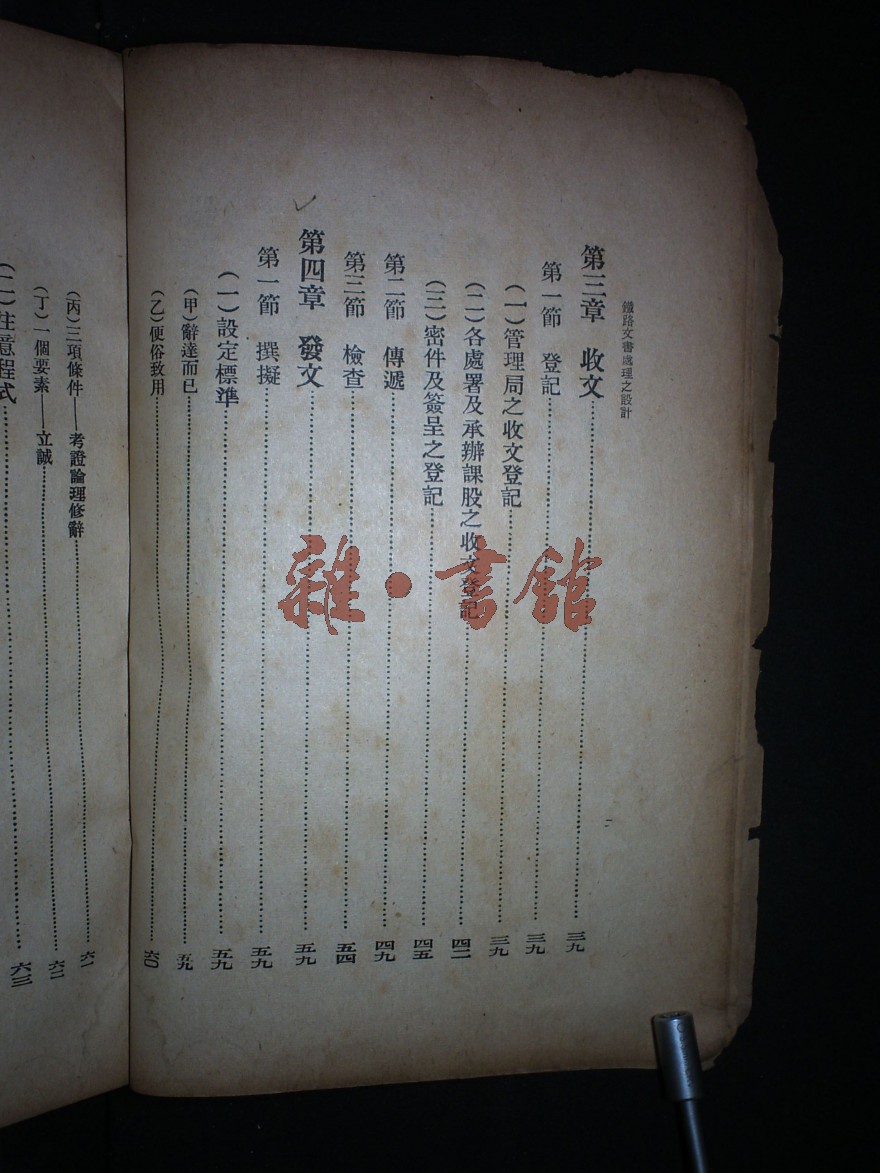 鐵路文書處理之設計
第三章 收文……三九
第一節 登記……三九
(一)管理局之收文登記……三九
(二)各處署及承辦課股之收文登記……四二
(三)密件及簽呈之登記……四五
第二節 傳遞……四九
第三節 檢查……五四
第四章 發文……五九
第一節 撰擬……五九
(一)設定標準……五九
(甲)辭達而已……五九
(乙)便俗致用……六〇
二
(丙)三項條件——考證論理修辭……六一
(丁)一個要素——立誠……六二
(二)注意程式……六三
雜·書館